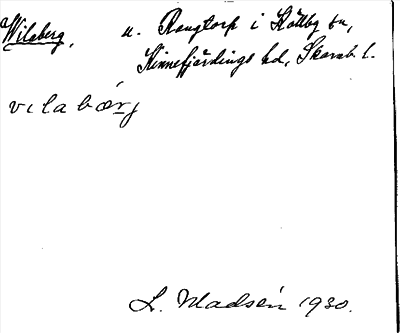 Wilaberg, u. Raugtorp i Kättby sn,
Kinnefjärdings hd, Skarab. l.
vilabærj
L. Madsén 1930.